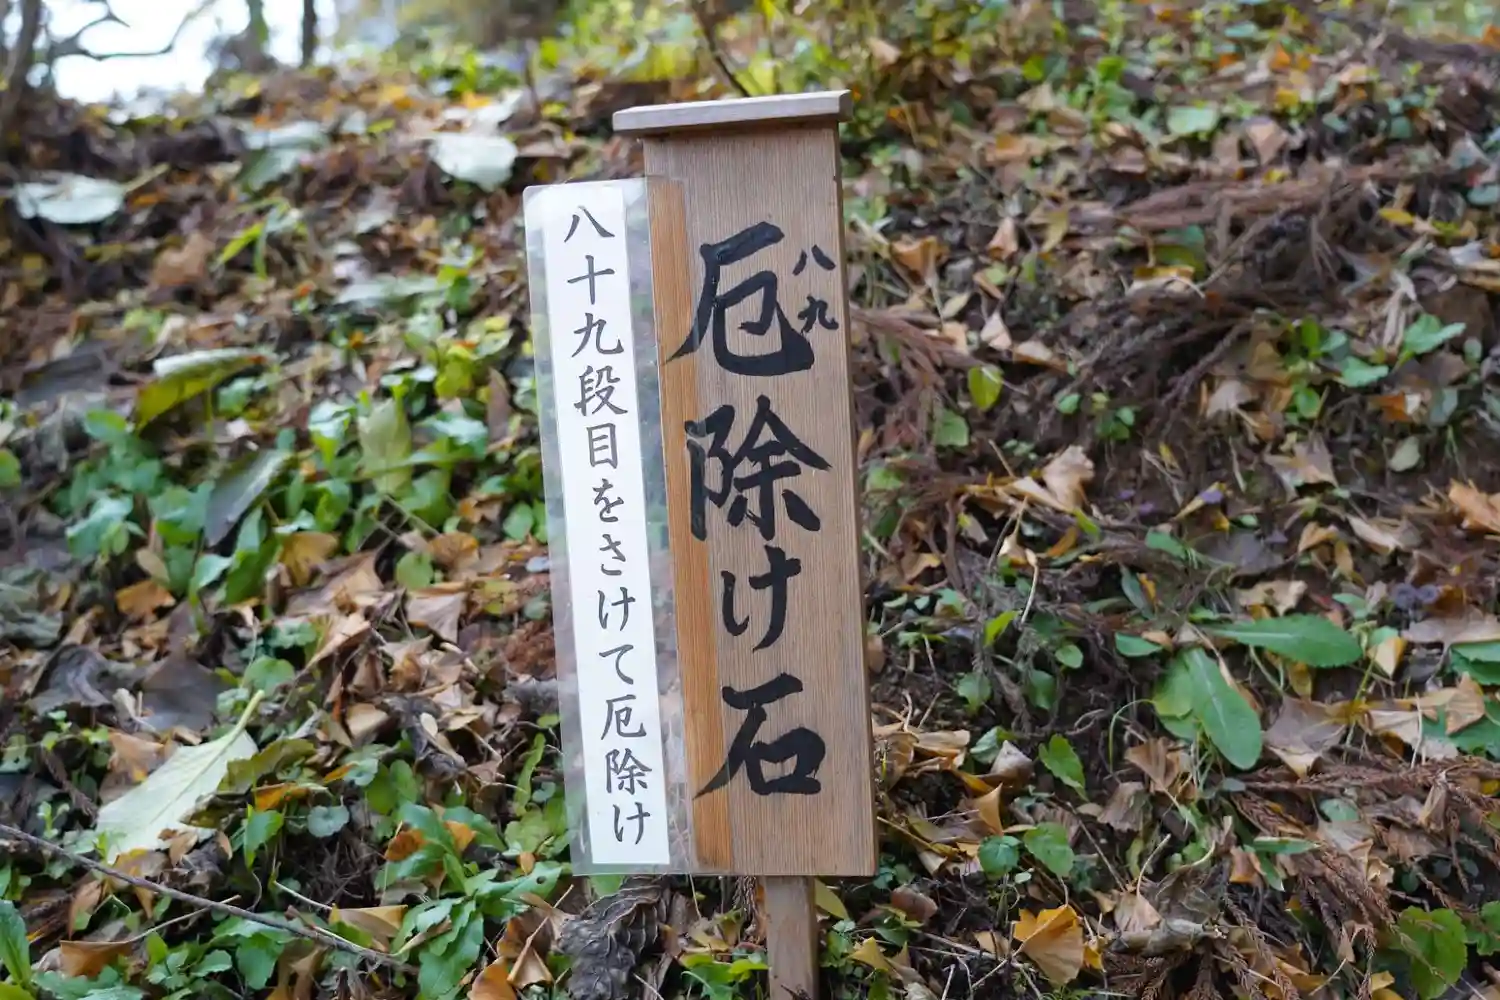 厄除け石
八九
八十九段目をさけて厄除け